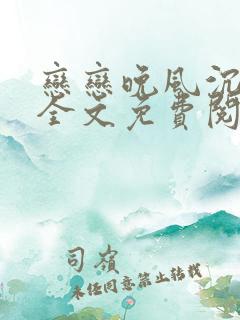 戀戀晚風沉
全文免費閱
司嶺
未经同意禁止转载